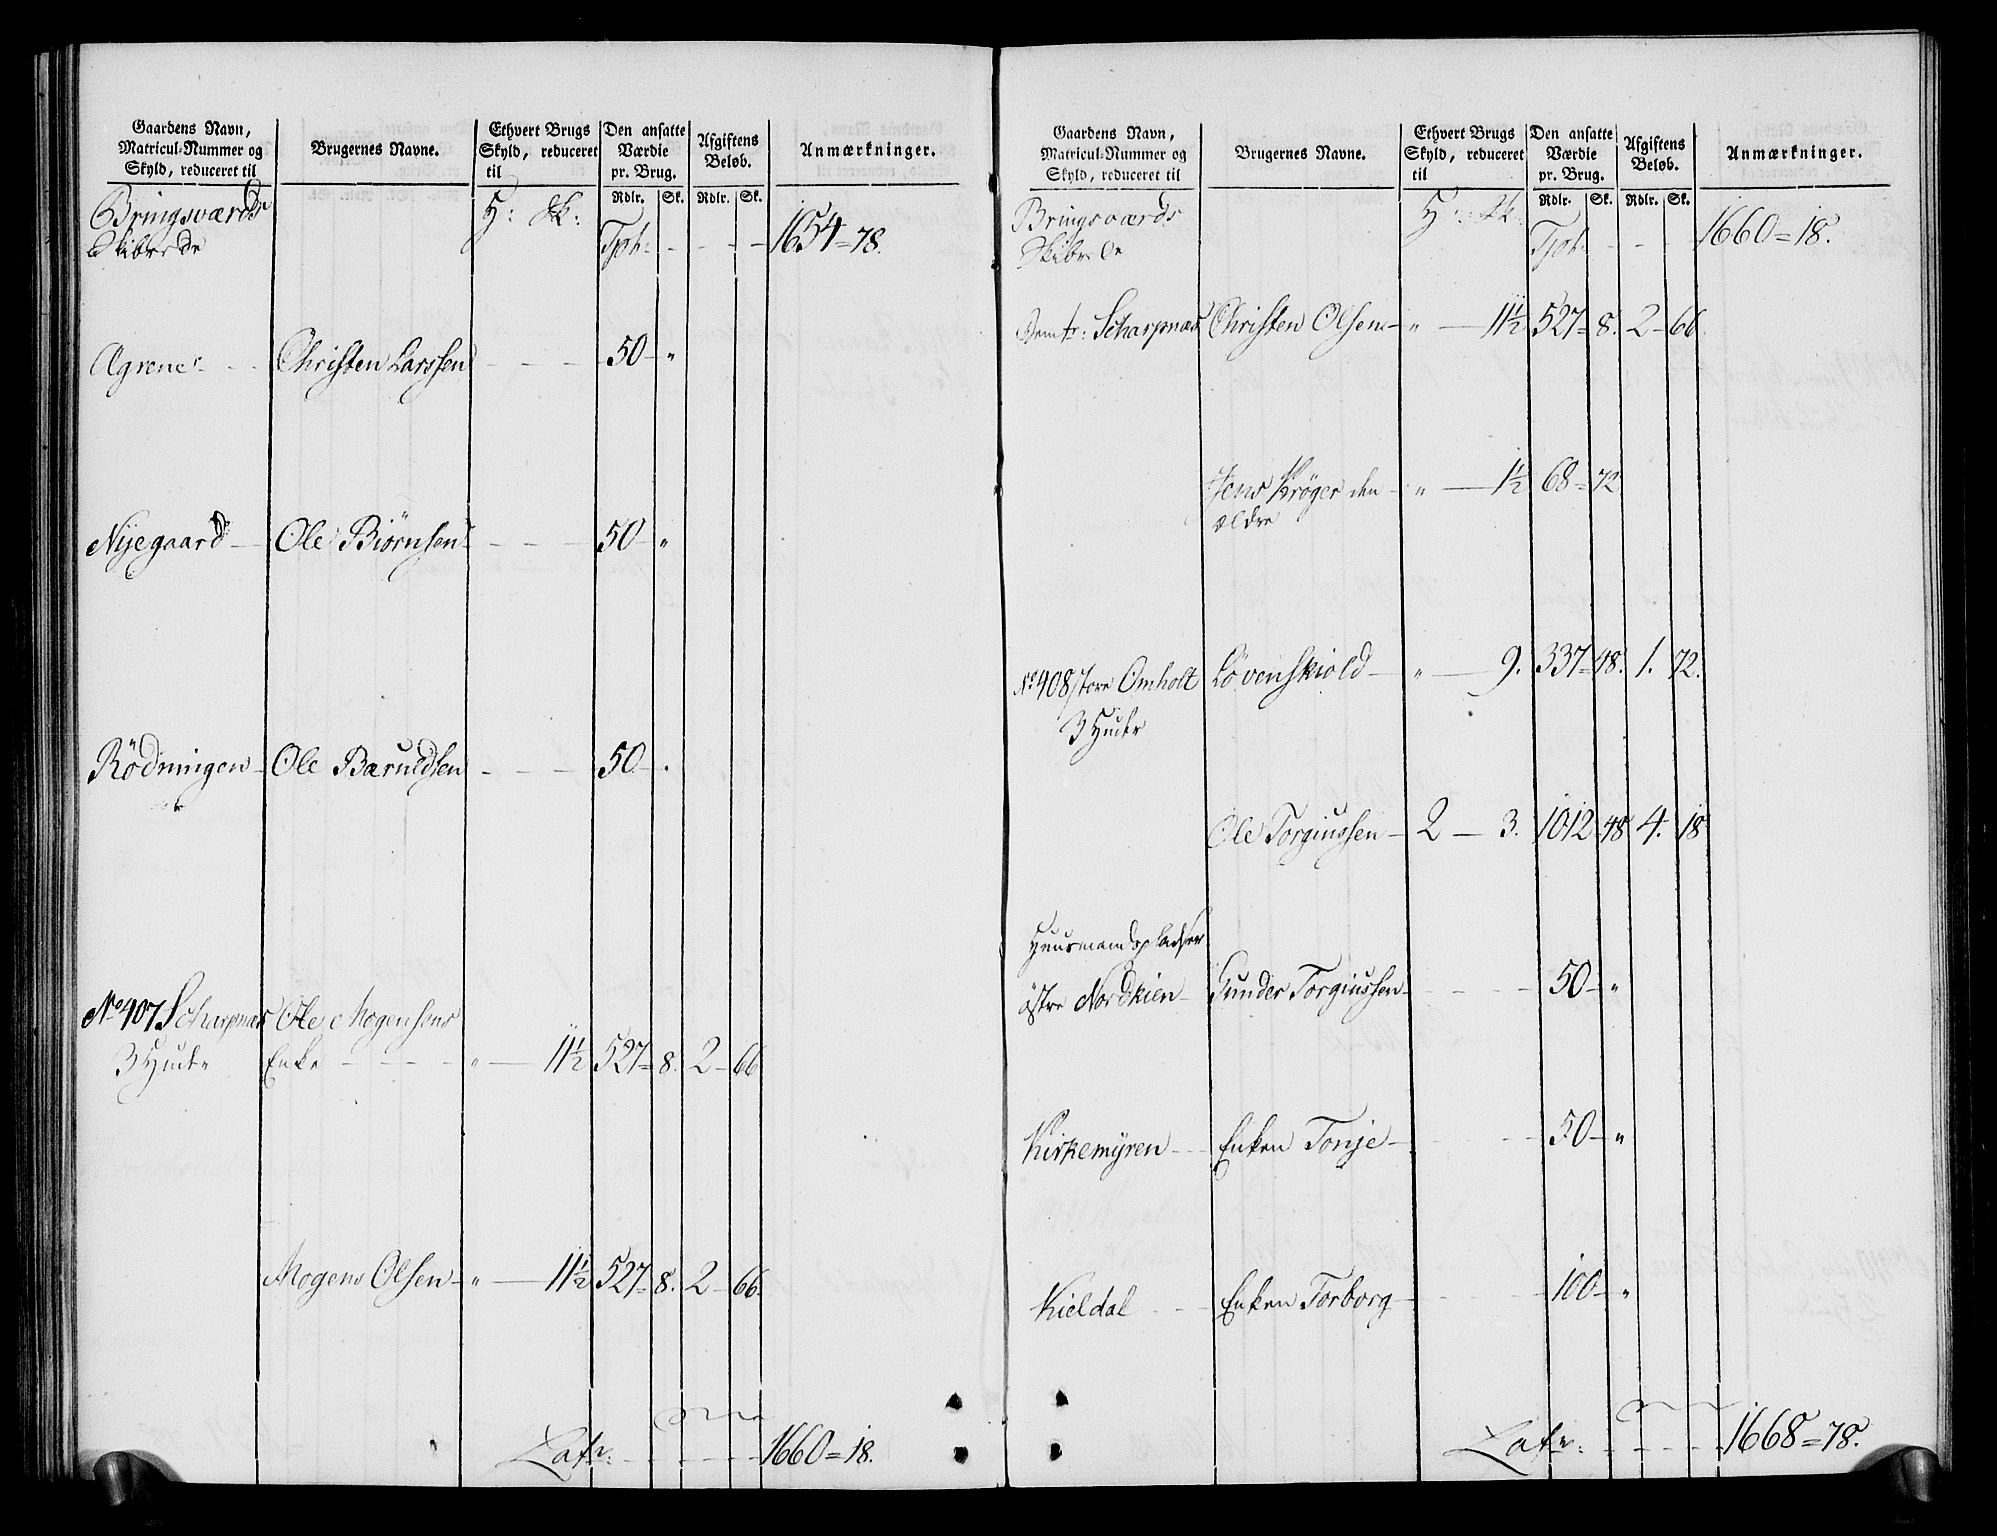 Gaardens Navn, Matricul-Nummer og Skyld, reduceret til | Brugernes Navne. | Ethvert Brugs Skyld, reduceret til | Den ansatte Værdie pr. Brug. | Afgiftens Beløb. | Anmærkninger.
Rdlr. Sk. Rdlr. Sk.
Bringsværds H: Sk:
Skibrede Tpt: - - - - 1654=78.
Agrenes - - Christen Larssen - - - 50 - "
Nÿegaard - Ole Biørnsen - - - 50 - "
Rödningen - Ole Baruldsen - - - 50 - "
No 407. Scharpnæs Ole Mogensens
3 Huder Enke - - - " - 11½ 527= 8. 2 - 66
Mogens Olsen - " - 11½ 527= 8. 2 - 66.
Latr: - - - - 1660=18.
Gaardens Navn, Matricul-Nummer og Skyld, reduceret til | Brugernes Navne. | Ethvert Brugs Skyld, reduceret til | Den ansatte Værdie pr. Brug. | Afgiftens Beløb. | Anmærkninger.
Rdlr. Sk. Rdlr. Sk.
Bringsværds H: Sk:
Skibrede Tpt: - - - 1660=18.
Scharpnæs Christen Olsen - " - 11½ 527= 8. 2 - 66.
Jens Krøger den - " - 1½ 68 = 72
ældre
No 408 store Omholt Løvenskiold - " - 9. 337= 48. 1. 72.
3 Huder
Ole Torgiussen - 2 - 3. 1012 48 4. 18
Huusmandspladser
östre Nordkien - Gunder Torgiussen - - - 50 - "
Kirkemÿren - - Enken Tonje - - - 50 - "
Kieldal - - Enken Torborg - - - 100 - "
Latr: - - - - 1668=78.